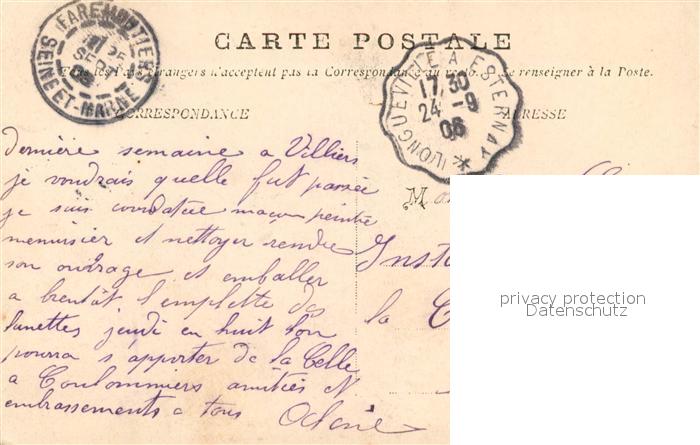 CARTE POSTALE
Tous les Pays étrangers n'acceptent pas la Correspondance au recto. Se renseigner à la Poste.
CORRESPONDANCE
ADRESSE
FAREMOUTIERS
SEINE-ET-MARNE
25
SEPT
LONGUEVILLE A ESTERNAY
17 30
24 -9
06
dernière semaine a Villiers
je voudrais quelle fut passée
je suis maçon peintre
menuisier et nettoyer rendre
son ouvrage et emballer
a bientôt l'emplette des
lunettes jeudi en huit l'on
pourra s'apporter de la Celle
a Coulommiers amitiés et
embrassements a tous
M
Insti
la C
privacy protection
Datenschutz